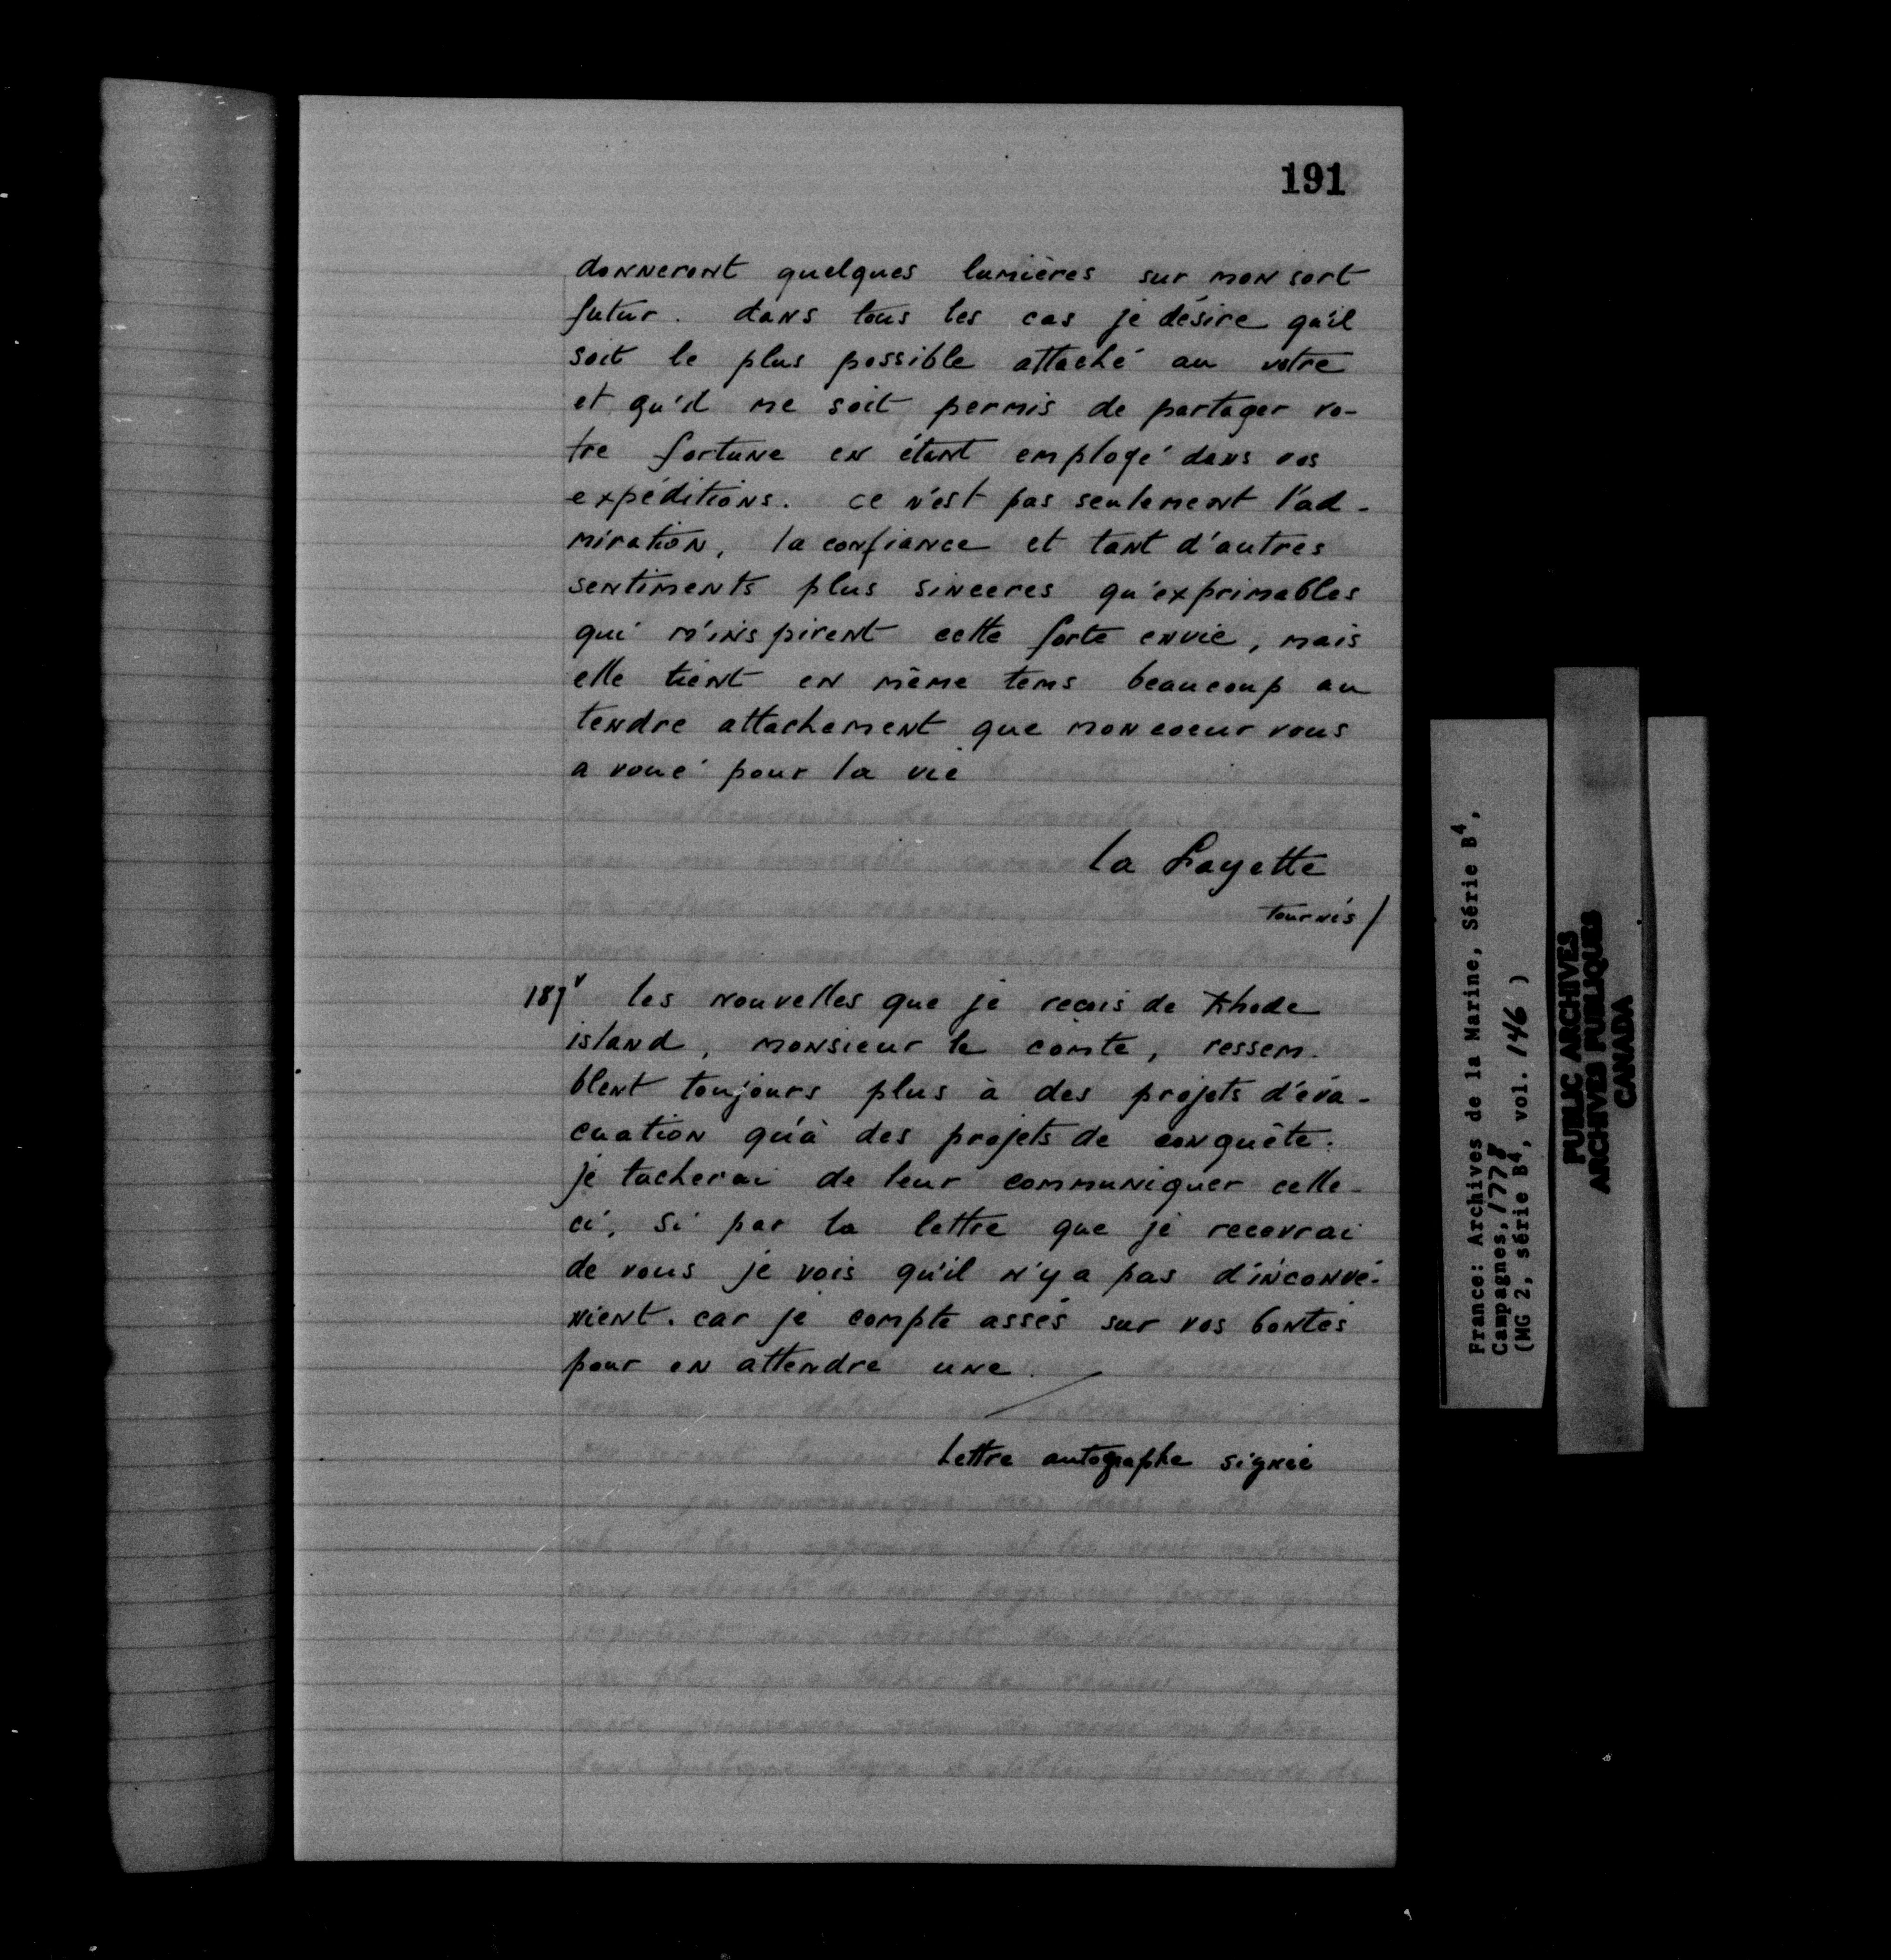 191
donneront quelques lumières sur mon sort
futur. dans tous les cas je désire qu'il
soit le plus possible attaché au votre
et qu'il me soit permis de partager vo-
tre fortune en étant employé dans vos
expéditions. ce n'est pas seulement l'ad-
miration, la confiance et tant d'autres
sentiments plus sinceres qu'exprimables
qui m'inspirent cette forte envie, mais
elle tient en même tems beaucoup au
tendre attachement que mon coeur vous
a voué pour la vie
la Fayette
tournés/
189v les nouvelles que je reçois de Rhode
island, monsieur le comte, ressem-
blent toujours plus à des projets d'éva-
cuation qu'à des projets de conquête.
je tacherai de leur communiquer celle-
ci, si par la lettre que je recevrai
de vous je vois qu'il n'y a pas d'inconvé-
nient. car je compte assés sur vos bontés
pour en attendre une.
Lettre autographe signée
France: Archives de la Marine, Série B4,
Campagnes, 1778
(MG 2, série B4, vol. 146 )
PUBLIC ARCHIVES
ARCHIVES PUBLIQUES
CANADA